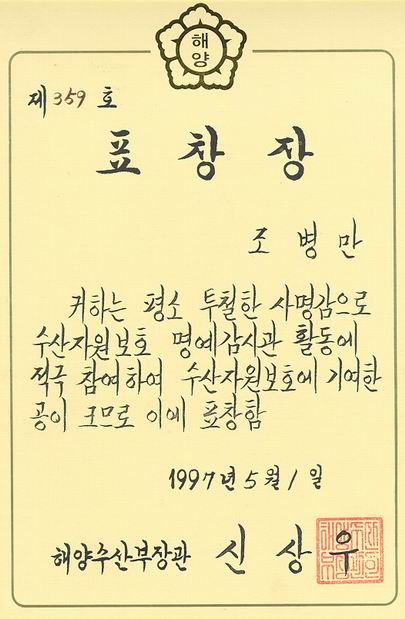 해양
제 359 호
표 창 장
조 병 만
귀하는 평소 투철한 사명감으로
수산자원보호 명예감시관 활동에
적극 참여하여 수산자원보호에 기여한
공이 크므로 이에 표창함
1997년 5월 1일
해양수산부장관 신 상 우